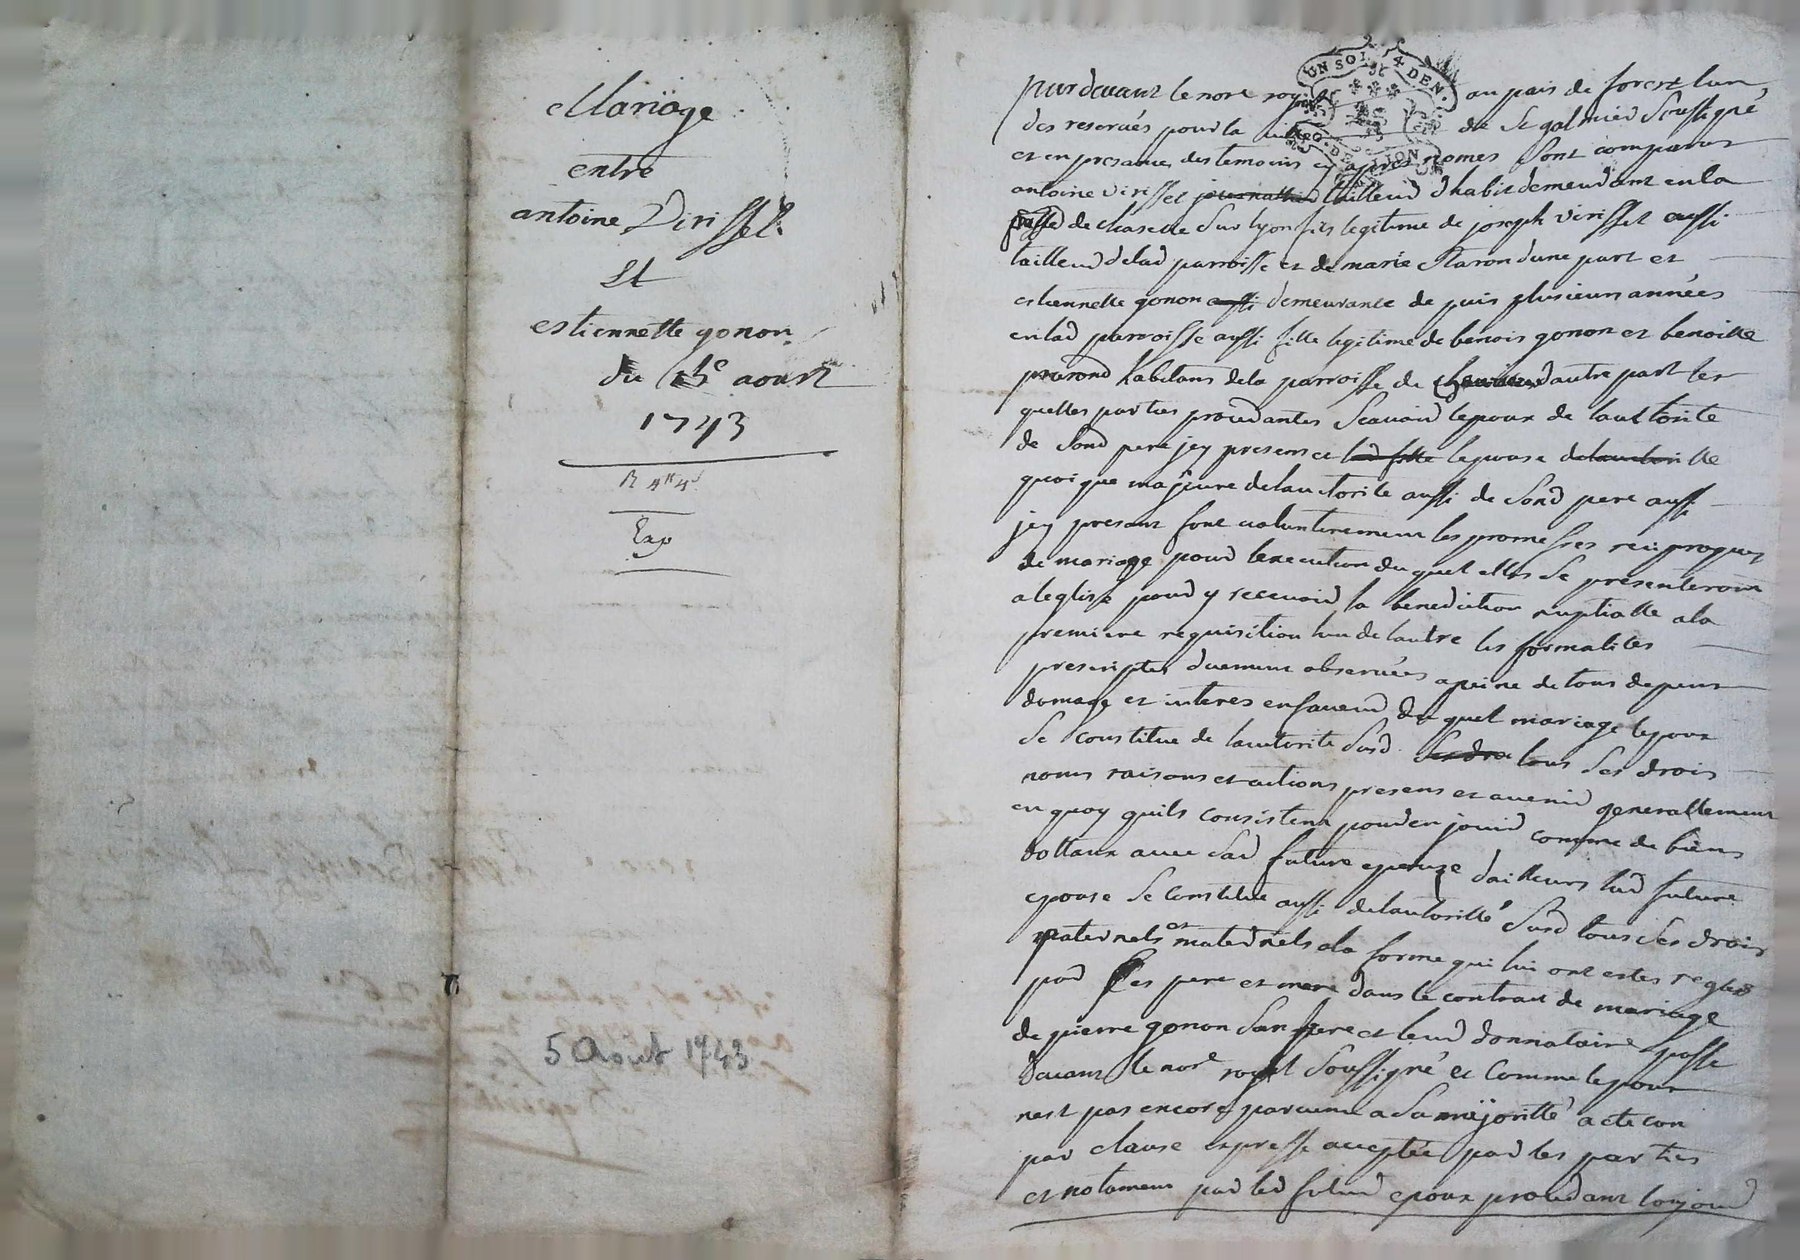 Mariage
entre
antoine Virisset
Et
estiennette gonon
du 5e aoust
1743
R 4# 4s
Exp
5 Aout 1743
UN SOL 4 DEN.
LION
pardevant le nore royal au pais de forest lun
des reservés pour la de St galmier Soussigné
et en presance des temoins cy apres només Sont comparus
antoine virisset journallier tailleur d'habit demeurant en la
de chaselle Sur lyon fils legitime de joseph virisset aussi
tailleur de lad parroisse et de marie dune part et
estiennette gonon aussi demeurante de puis plusieurs années
en lad parroisse aussi fille legitime de benoit gonon et benoitte
habitans de la parroisse de dautre part les
quelles parties procedantes Scavoir lepoux de lauthorité
de Sond pere jcy present et lad fille lepouse de
quoi que majeure de lauctorite aussi de Sond pere aussi
jcy present font voluntairement les promesses reciproques
de mariage pour lexecution du quel elles Se presenteront
a leglise pour y recevoir la benediction nuptialle a la
premiere requisition lun de lautre les formalites
prescriptes duement observées a peine de tous depens
domage et interes en faveur du quel mariage lepoux
Se constitue de lautorite Susd Ses droi tous Ses drois
noms raisons et actions presens et avenir generallement
en quoy quils consistent pour en jouir comme de biens
dottaux avec Sad future epouze dailleurs lad future
epouse Se constitue aussi de lautoritté Susd tous Ses drois
paternels et maternels a la forme qui lui ont estes reglés
par Ses pere et mere dans le contrat de mariage
de pierre gonon Son frere et leur donnataire passé
devant le nore royal Soussigné et Comme lepoux
nest pas encore parvenu a Sa majoritté a ete con
par clause expresse acceptée par les parties
et notament par led futur epoux procedant toujour